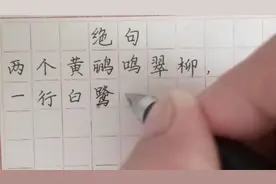 绝句
两个黄鹂鸣翠柳,
一行白鹭